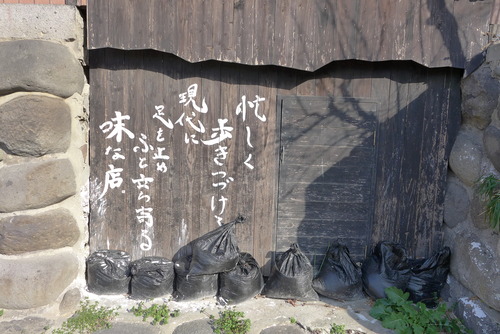 忙しく
歩きつづける
現代に
足を止め
ふと立ち寄る
味な店。